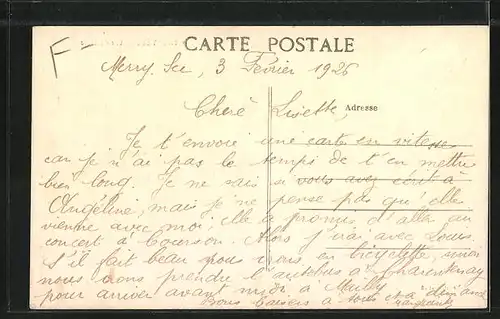 F-
CARTE POSTALE
Merry Sec, 3 Février 1926
Cheré Lisette,
Adresse
Je t'envoie une carte en vitesse
car je n'ai pas le temps de t'en mettre
bien long. Je ne sais si vous avez écrit à
Angéline, mais je ne pense pas qu'elle
vienne avec moi; elle a promis d'aller au
concert d'Courson. Alors j'irai avec Louis.
S'il fait beau nous irons en bicyclette, sinon
nous irons prendre l'autobus à Charentenay
pour arriver avant midi à Mailly
Bons baisers à tous et à dimanche